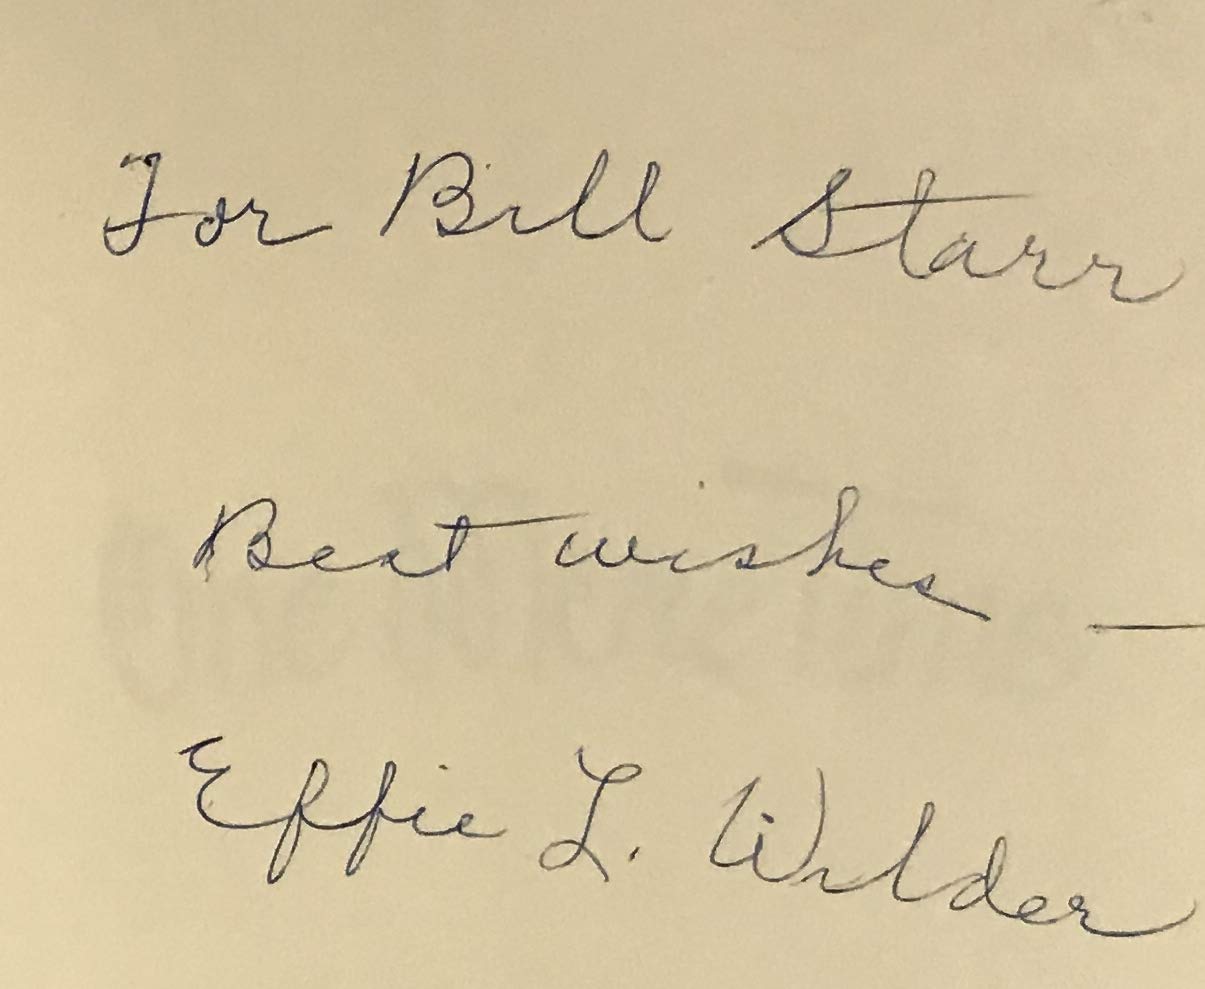 For Bill Starr
Best wishes —
Effie L. Wilder